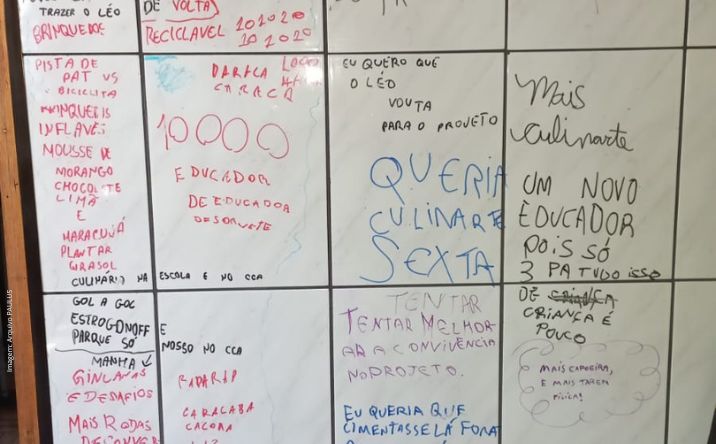 TRAZER O LÉO
BRINQUEDOS
DE VOLTA
RECICLAVEL 202020
202020
PISTA DE
PAT VS
BICICLITA
INFLAVEI
MOUSSE DE
MORANGO
CHOCOLATE
LIMÃ
E
MARACUJÁ
PLANTAR
GIRASOL
CULINÁRIO NA ESCOLA E NO CCA
LOCO
CARACA
10000
EDUCADOR
DE EDUCADOR
DE SORVETE
EU QUERO QUE
O LÉO
VOUTA
PARA O PROJETO
QUERIA
CULINARTE
SEXTA
Mais
Culinarte
UM NOVO
EDUCADOR
POIS SÓ
3 PA TUDO ISSO
DE CRIANÇA
CRIANÇA É
POUCO
GOL A GOL
ESTROGONOFF
PARQUE SÓ
MANHA
GINCANAS
E DESAFIOS
MAIS RODAS
DE CONVER
E
NOSSO NO CCA
CARACABA
TENTAR
TENTAR MELHOR
AR A CONVIVÊNCIA
NO PROJETO.
EU QUERIA QUE
CIMENTASSE LÁ FORA
MAIS CAPOEIRA,
E MAIS TAREM
FISICA!
Imagem: Arquivo PAULUS